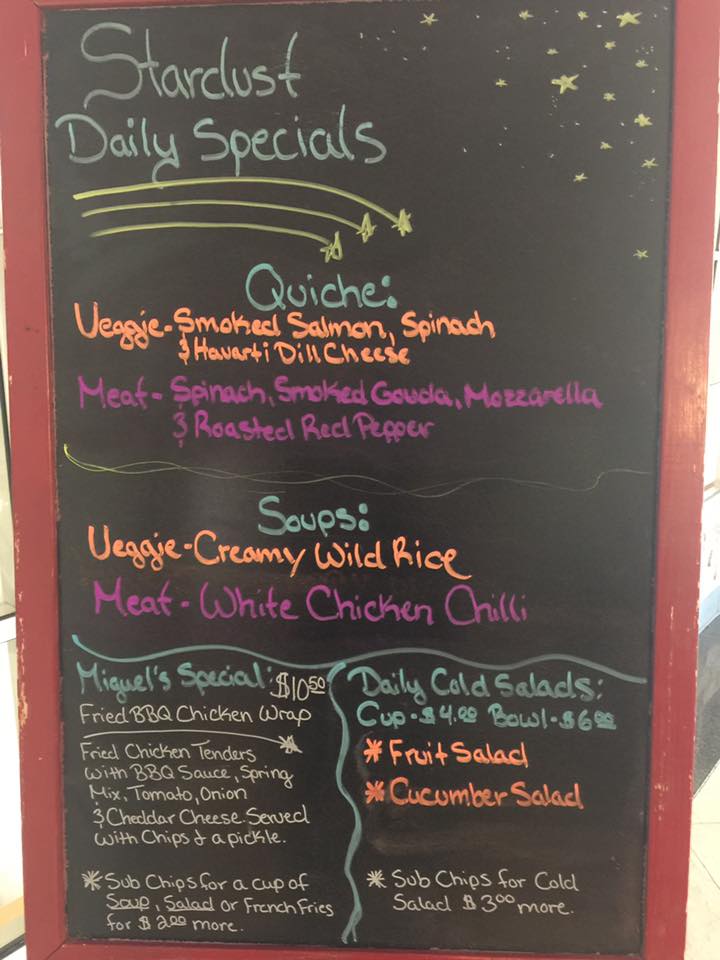 Stardust
Daily Specials
Quiche:
Veggie - Smoked Salmon, Spinach
& Havarti Dill Cheese
Meat - Spinach, Smoked Gouda, Mozzarella
& Roasted Red Pepper
Soups:
Veggie - Creamy Wild Rice
Meat - White Chicken Chilli
Miguel's Special: $10.50
Fried BBQ Chicken Wrap
Fried Chicken Tenders
with BBQ Sauce, Spring
Mix, Tomato, Onion
& Cheddar Cheese. Served
with Chips & a pickle.
* Sub Chips for a cup of
Soup, Salad or French Fries
for $2.00 more.
Daily Cold Salads:
Cup - $4.00 Bowl - $6.00
* Fruit Salad
* Cucumber Salad
* Sub Chips for Cold
Salad $3.00 more.